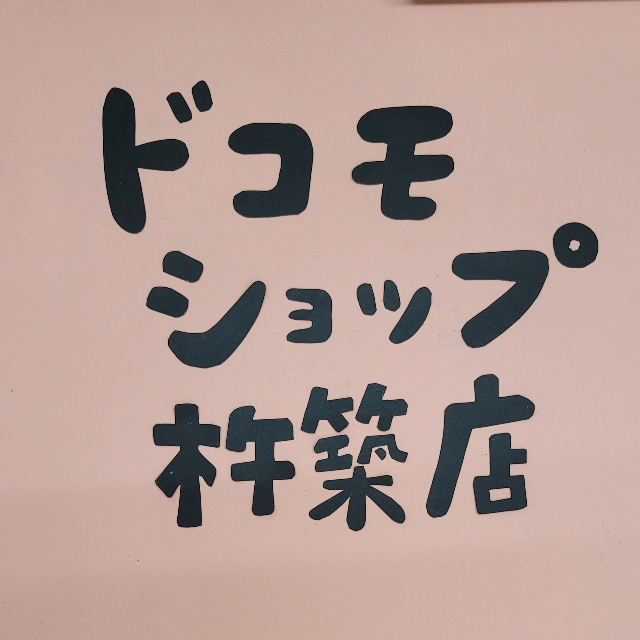 ドコモ
ショップ
杵築店